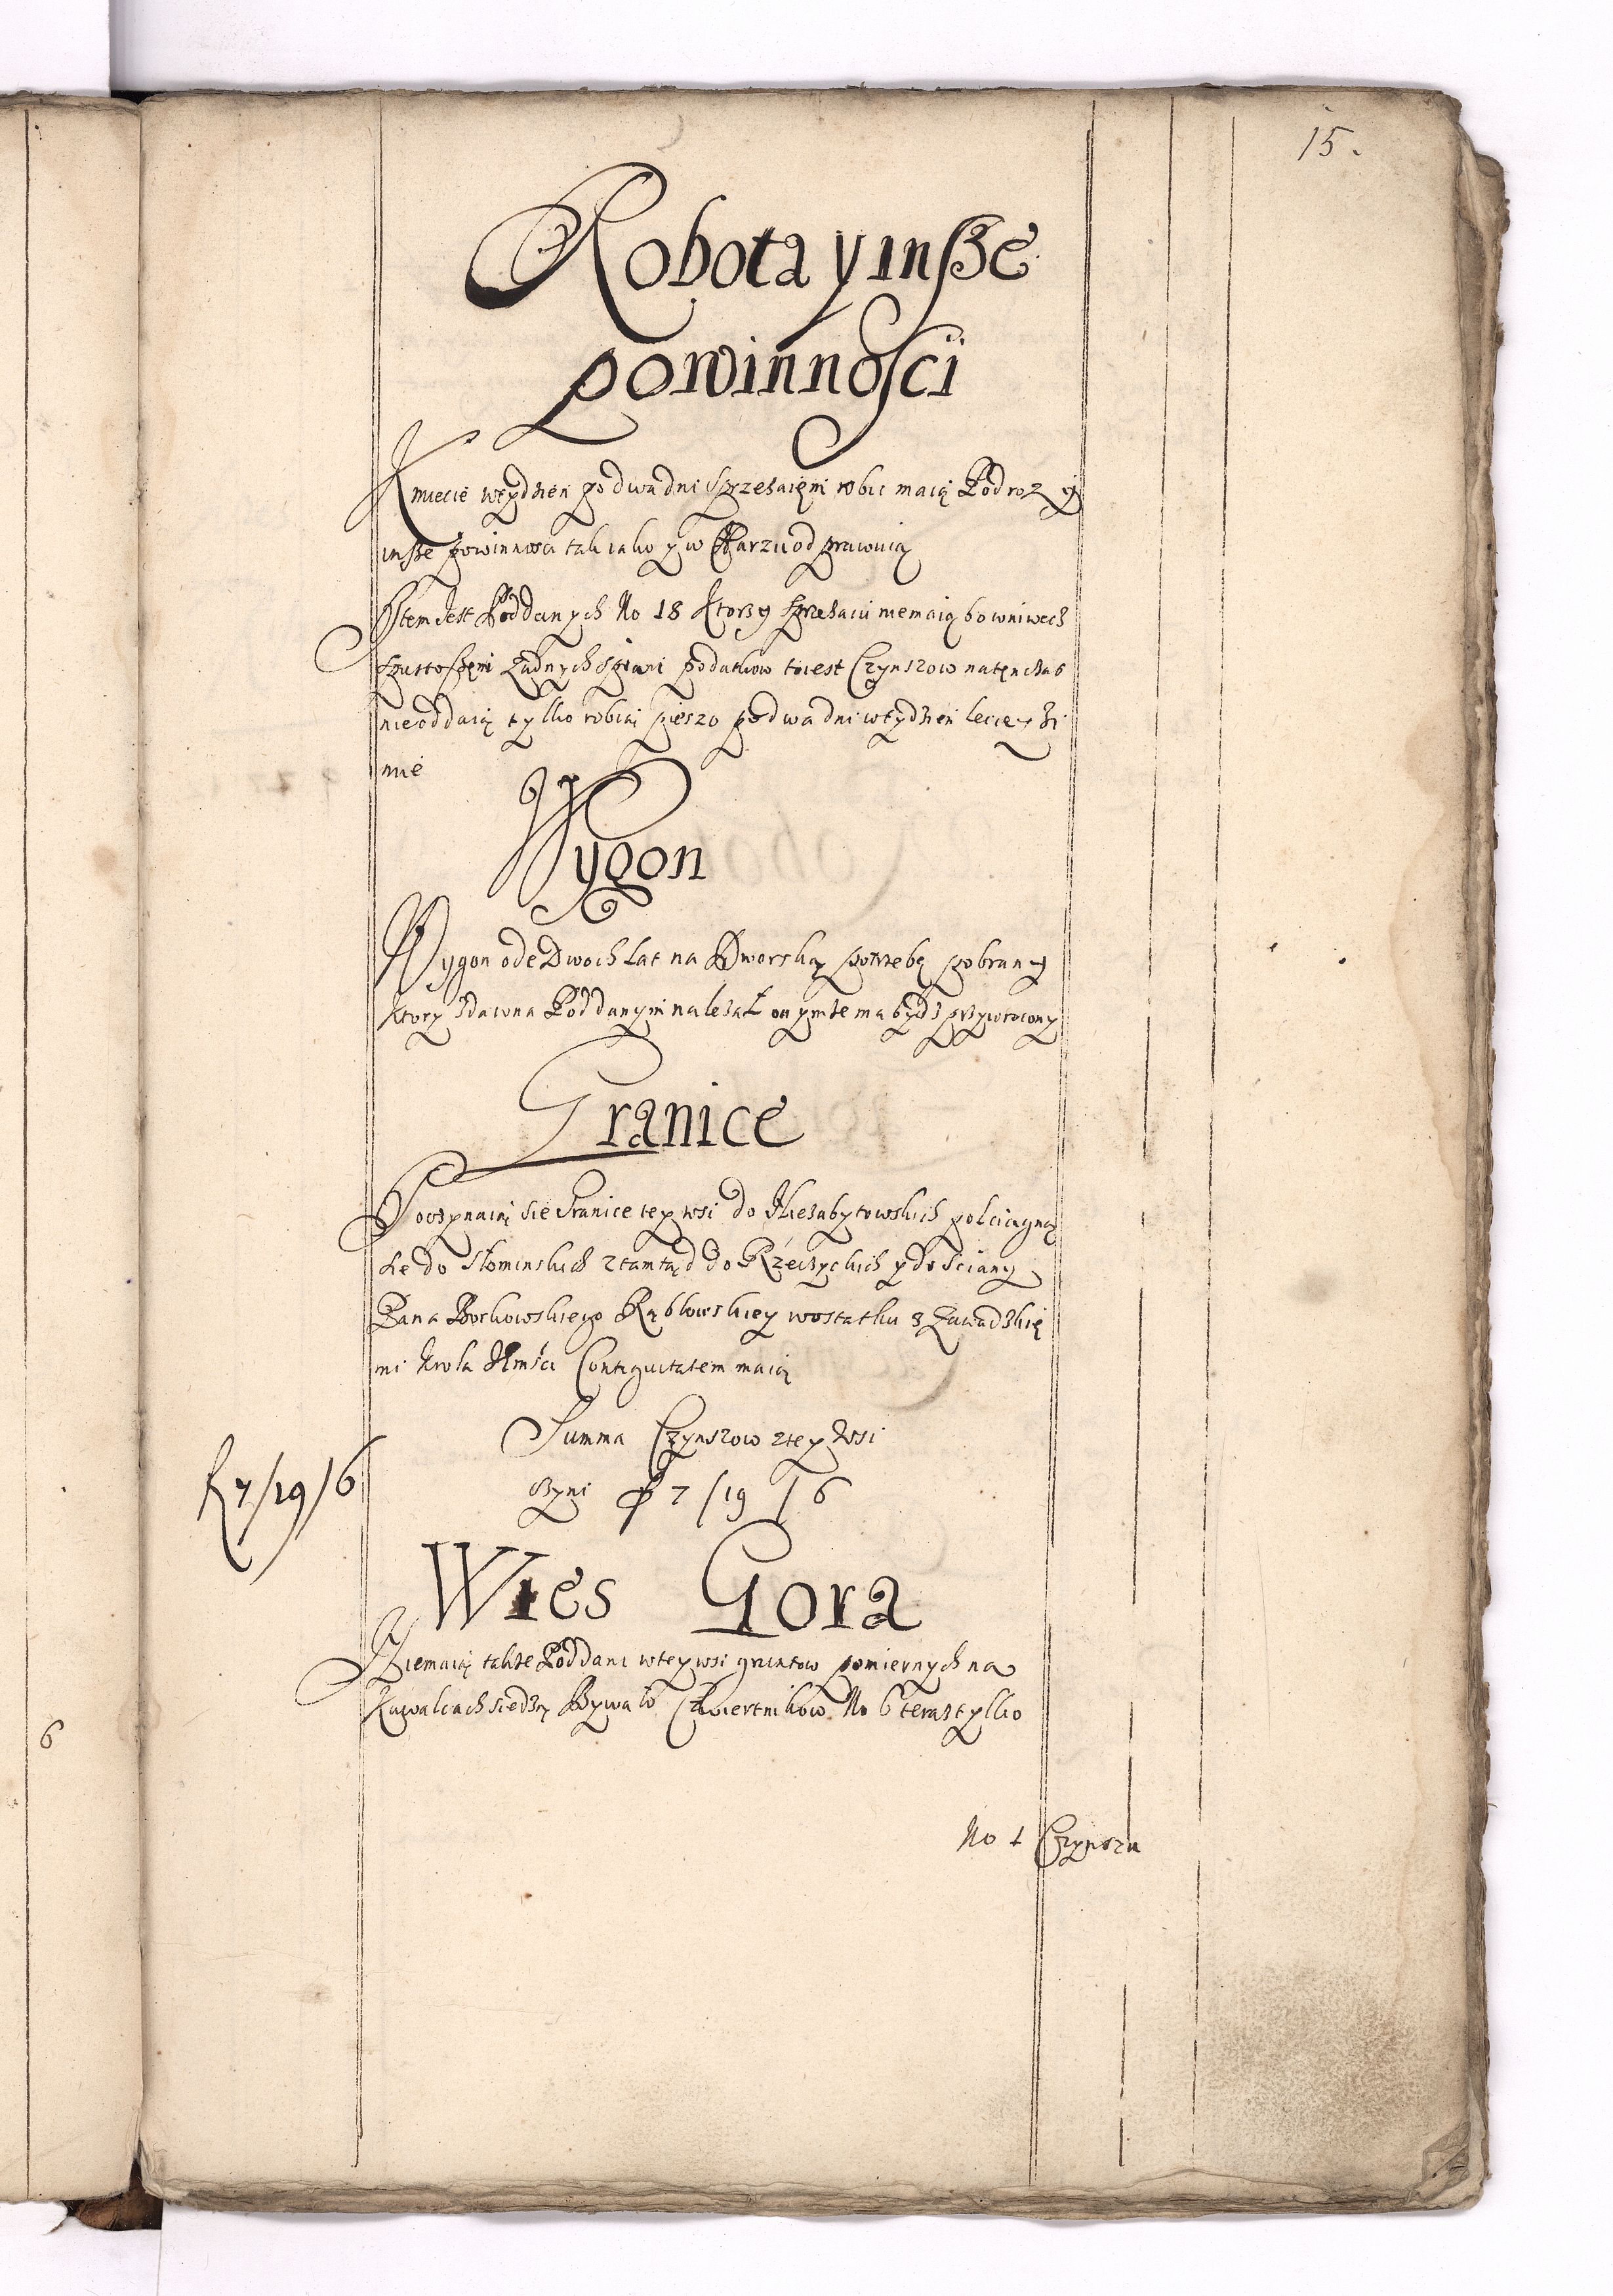 15.
Robota y insze
powinnosci
Kmiecie wtydzien po dwa dni sprzezaięmi robic maią Podroz y
insze powinnosci tak iako y w Charzu odprawuią
Item Jest Poddanych No 18 ktorzy sprzezaiu niemaią bo wniwecz
spustoszeni Zadnych spłani podatkow toiest Czynszow natenczas
nieoddaią tylko robią pieszo po dwa dni wtydzien lecie y Zi
mie
Wygon
Wygon ode Dwoch Lat na Dworską potrzebę pobrany
ktory zdawna Poddanym nalezał onymze ma bydz przywrocony
Granice
Poczynaią sie Granice tey wsi do Niezabytowskich pol ciągną
sie do Słominskich ztamtąd do Rzeczyckich y do Sciany
Pana Borkowskiego Rąblowskiey wostatku z Zawadzkię
mi Krola Jmści Contiguitatem maią
Summa Czynszow ztey Wsi
czyni f 7/19/6
f 7/19/6
Wies Gora
Niemaią takze Poddani wtey wsi gruntow pomiernych na
Kawalcach siedzą Bywało Cwiertnikow No 6 teraz tylko
No 1 Czynszu
6